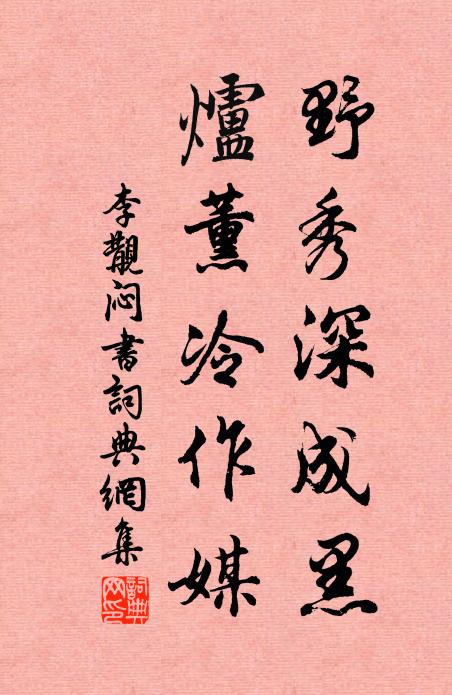 野秀深成黑
爐薰冷作媒
李觀悶書詞典網集
詞典網印